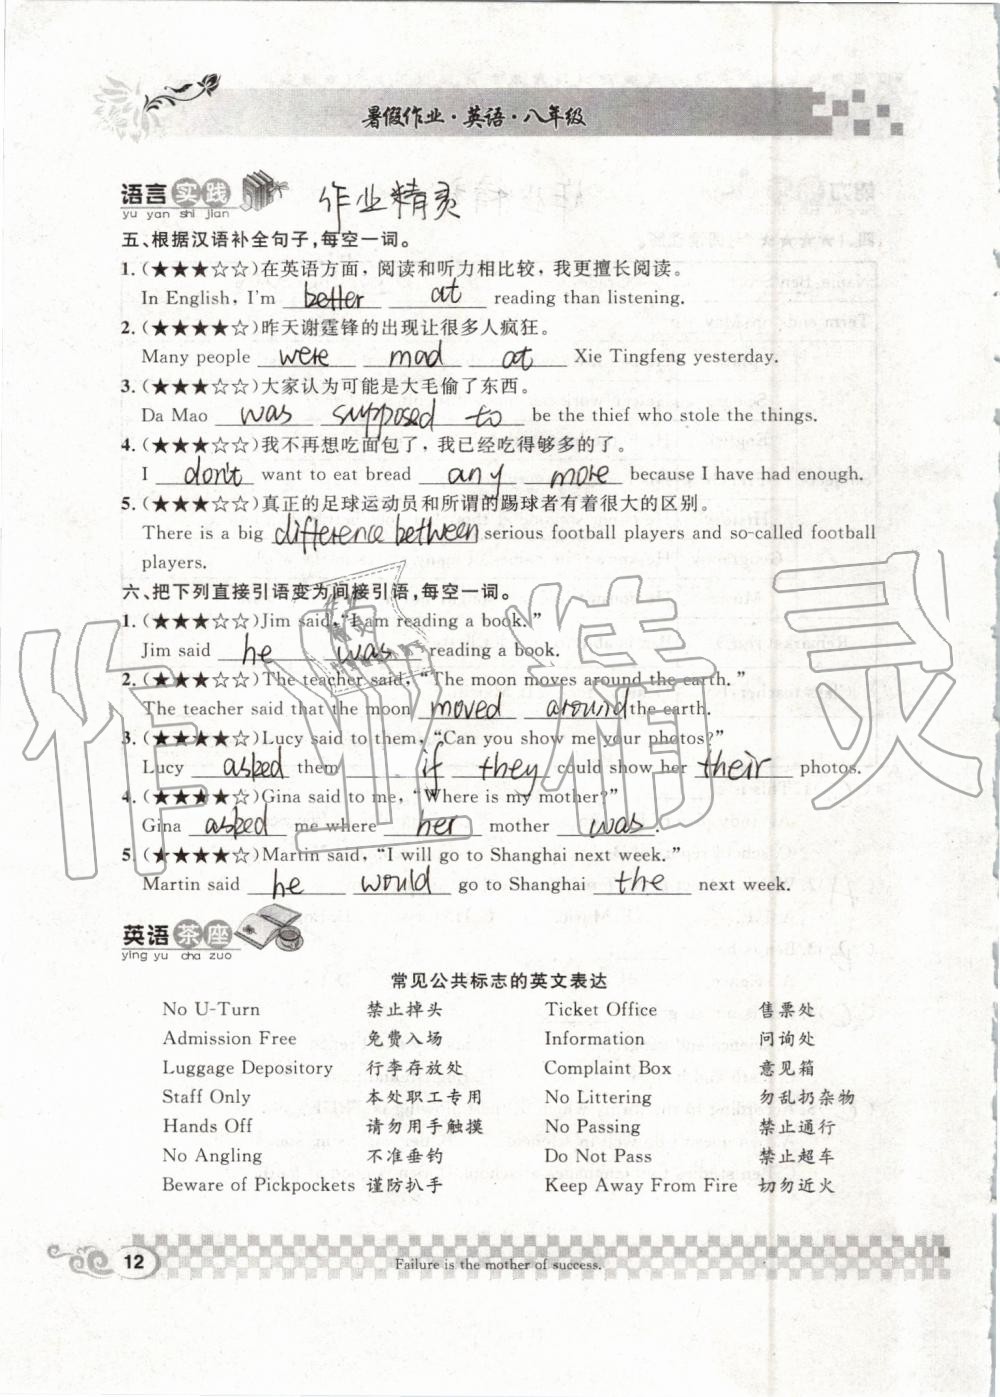 暑假作业·英语·八年级
语言实践
yu yan shi jian
作业精灵
五、根据汉语补全句子,每空一词。
1. (★★★☆☆)在英语方面,阅读和听力相比较,我更擅长阅读。
In English, I'm better at reading than listening.
2. (★★★★☆)昨天谢霆锋的出现让很多人疯狂。
Many people were mad at Xie Tingfeng yesterday.
3. (★★★☆☆)大家认为可能是大毛偷了东西。
Da Mao was supposed to be the thief who stole the things.
4. (★★★☆☆)我不再想吃面包了,我已经吃得够多的了。
I don't want to eat bread any more because I have had enough.
5. (★★★☆☆)真正的足球运动员和所谓的踢球者有着很大的区别。
There is a big difference between serious football players and so-called football
players.
六、把下列直接引语变为间接引语,每空一词。
1. (★★★☆☆)Jim said, "I am reading a book."
Jim said he was reading a book.
2. (★★★☆☆)The teacher said, "The moon moves around the earth."
The teacher said that the moon moved around the earth.
3. (★★★★☆)Lucy said to them, "Can you show me your photos?"
Lucy asked them if they could show her their photos.
4. (★★★★☆)Gina said to me, "Where is my mother?"
Gina asked me where her mother was.
5. (★★★★☆)Martin said, "I will go to Shanghai next week."
Martin said he would go to Shanghai the next week.
英语茶座
ying yu cha zuo
常见公共标志的英文表达
No U-Turn 禁止掉头 Ticket Office 售票处
Admission Free 免费入场 Information 问询处
Luggage Depository 行李存放处 Complaint Box 意见箱
Staff Only 本处职工专用 No Littering 勿乱扔杂物
Hands Off 请勿用手触摸 No Passing 禁止通行
No Angling 不准垂钓 Do Not Pass 禁止超车
Beware of Pickpockets 谨防扒手 Keep Away From Fire 切勿近火
12
Failure is the mother of success.
作业精灵